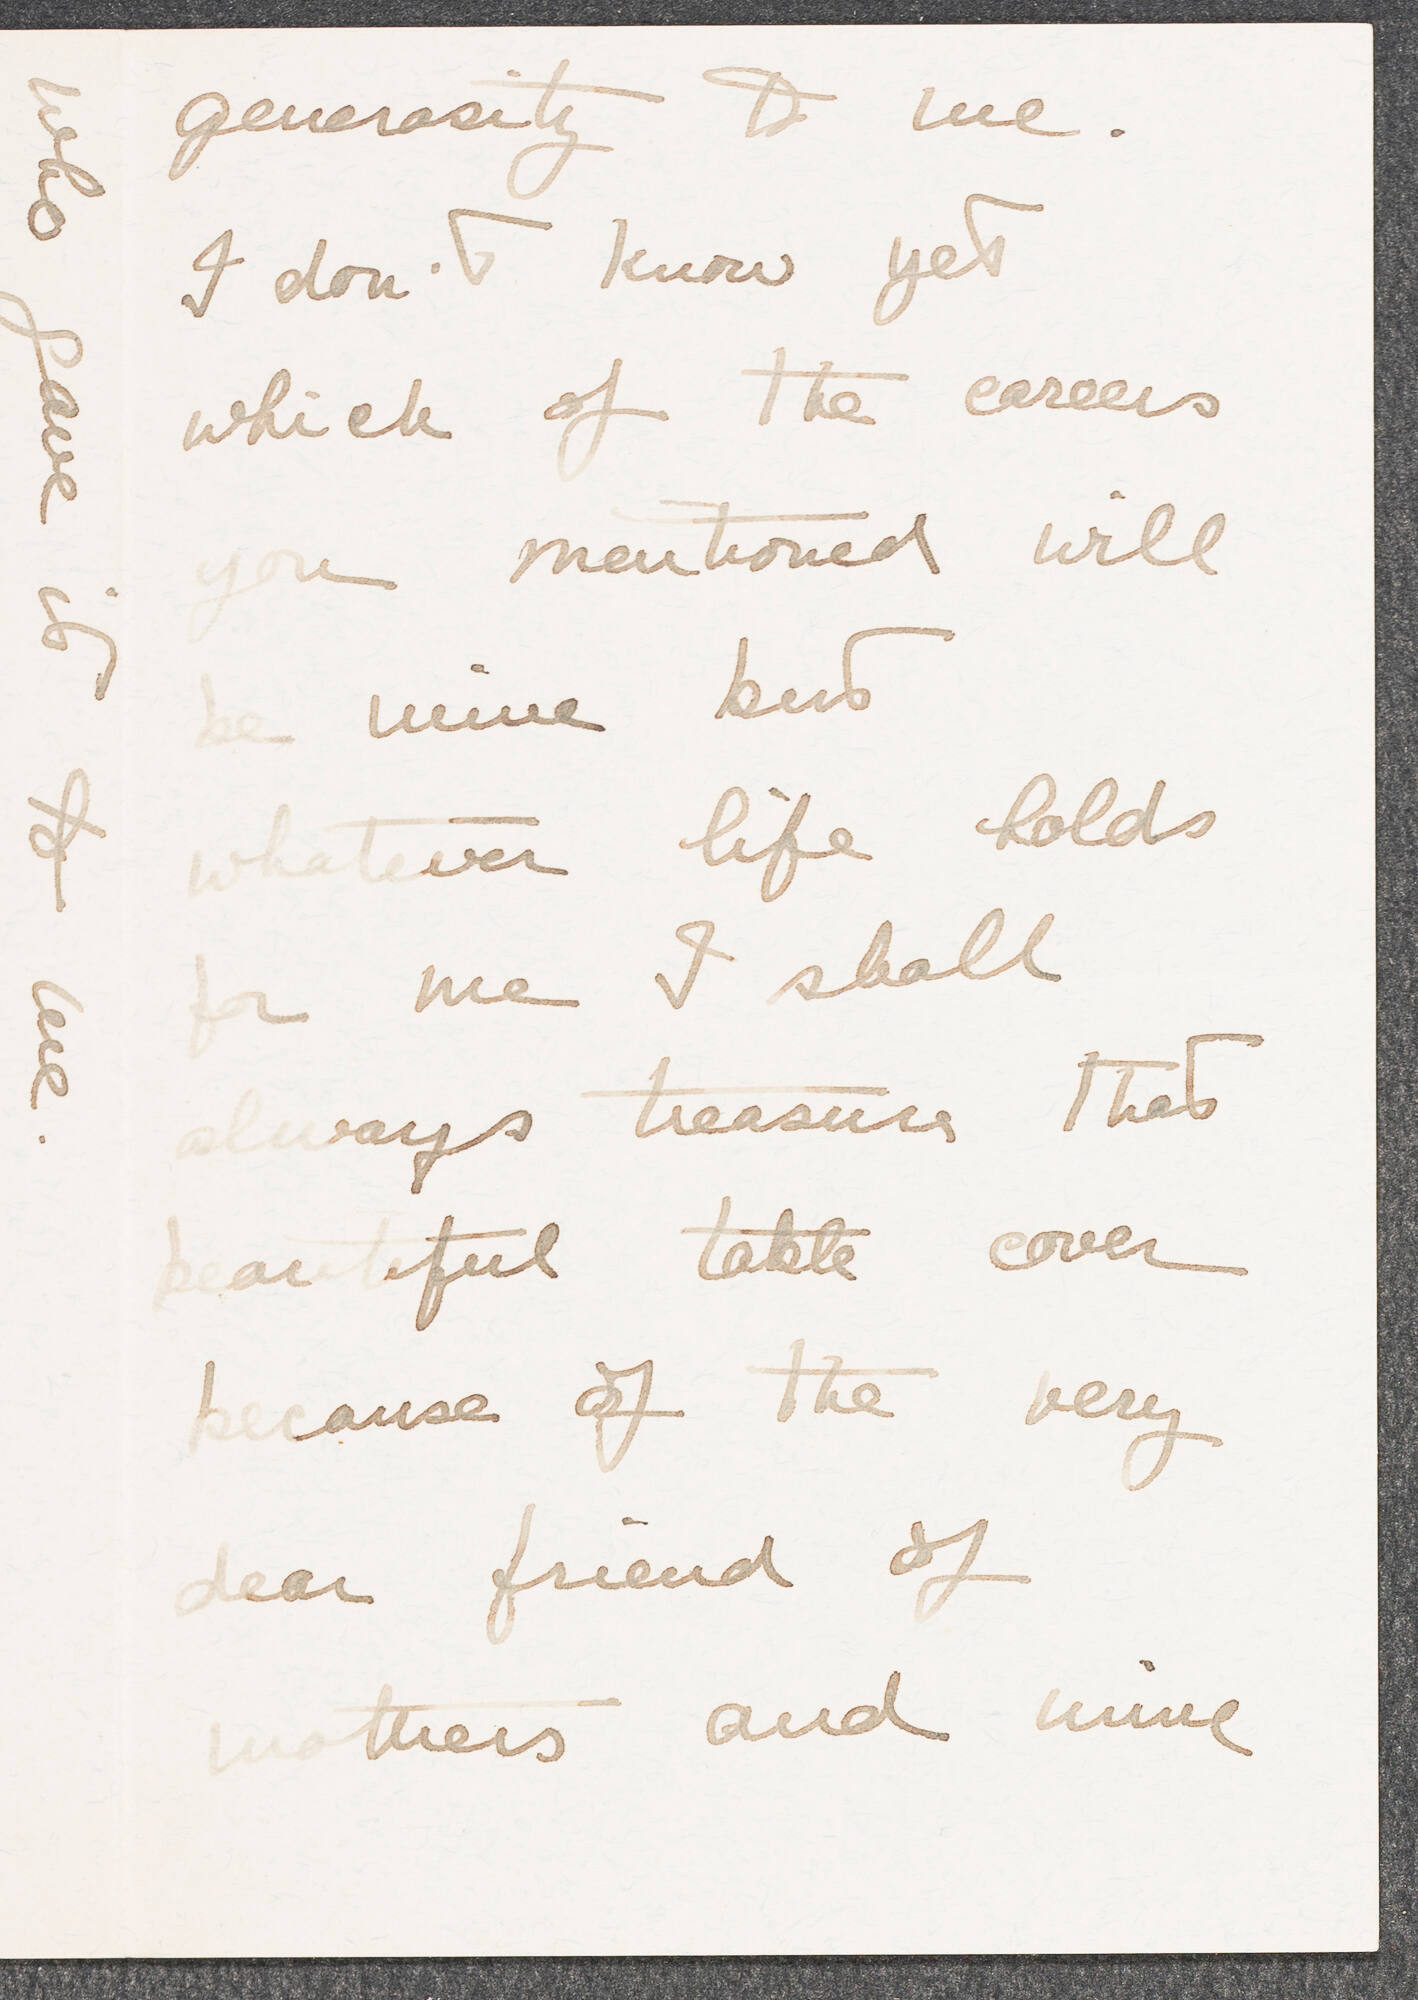 generosity to me.
I don't know yet
which of the careers
you mentioned will
be mine but
whatever life holds
for me I shall
always treasure that
beautiful table cover
because of the very
dear friend of
mothers and mine
who gave it to me.